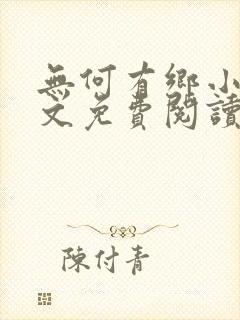 無何有鄉小
文免費閱讀
陳付青